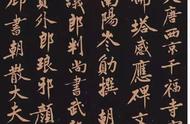 大唐西京千福寺
佛塔感應碑文
南陽岑勳撰朝
議郎判尚書武
外郎琅邪顏
書朝散大夫